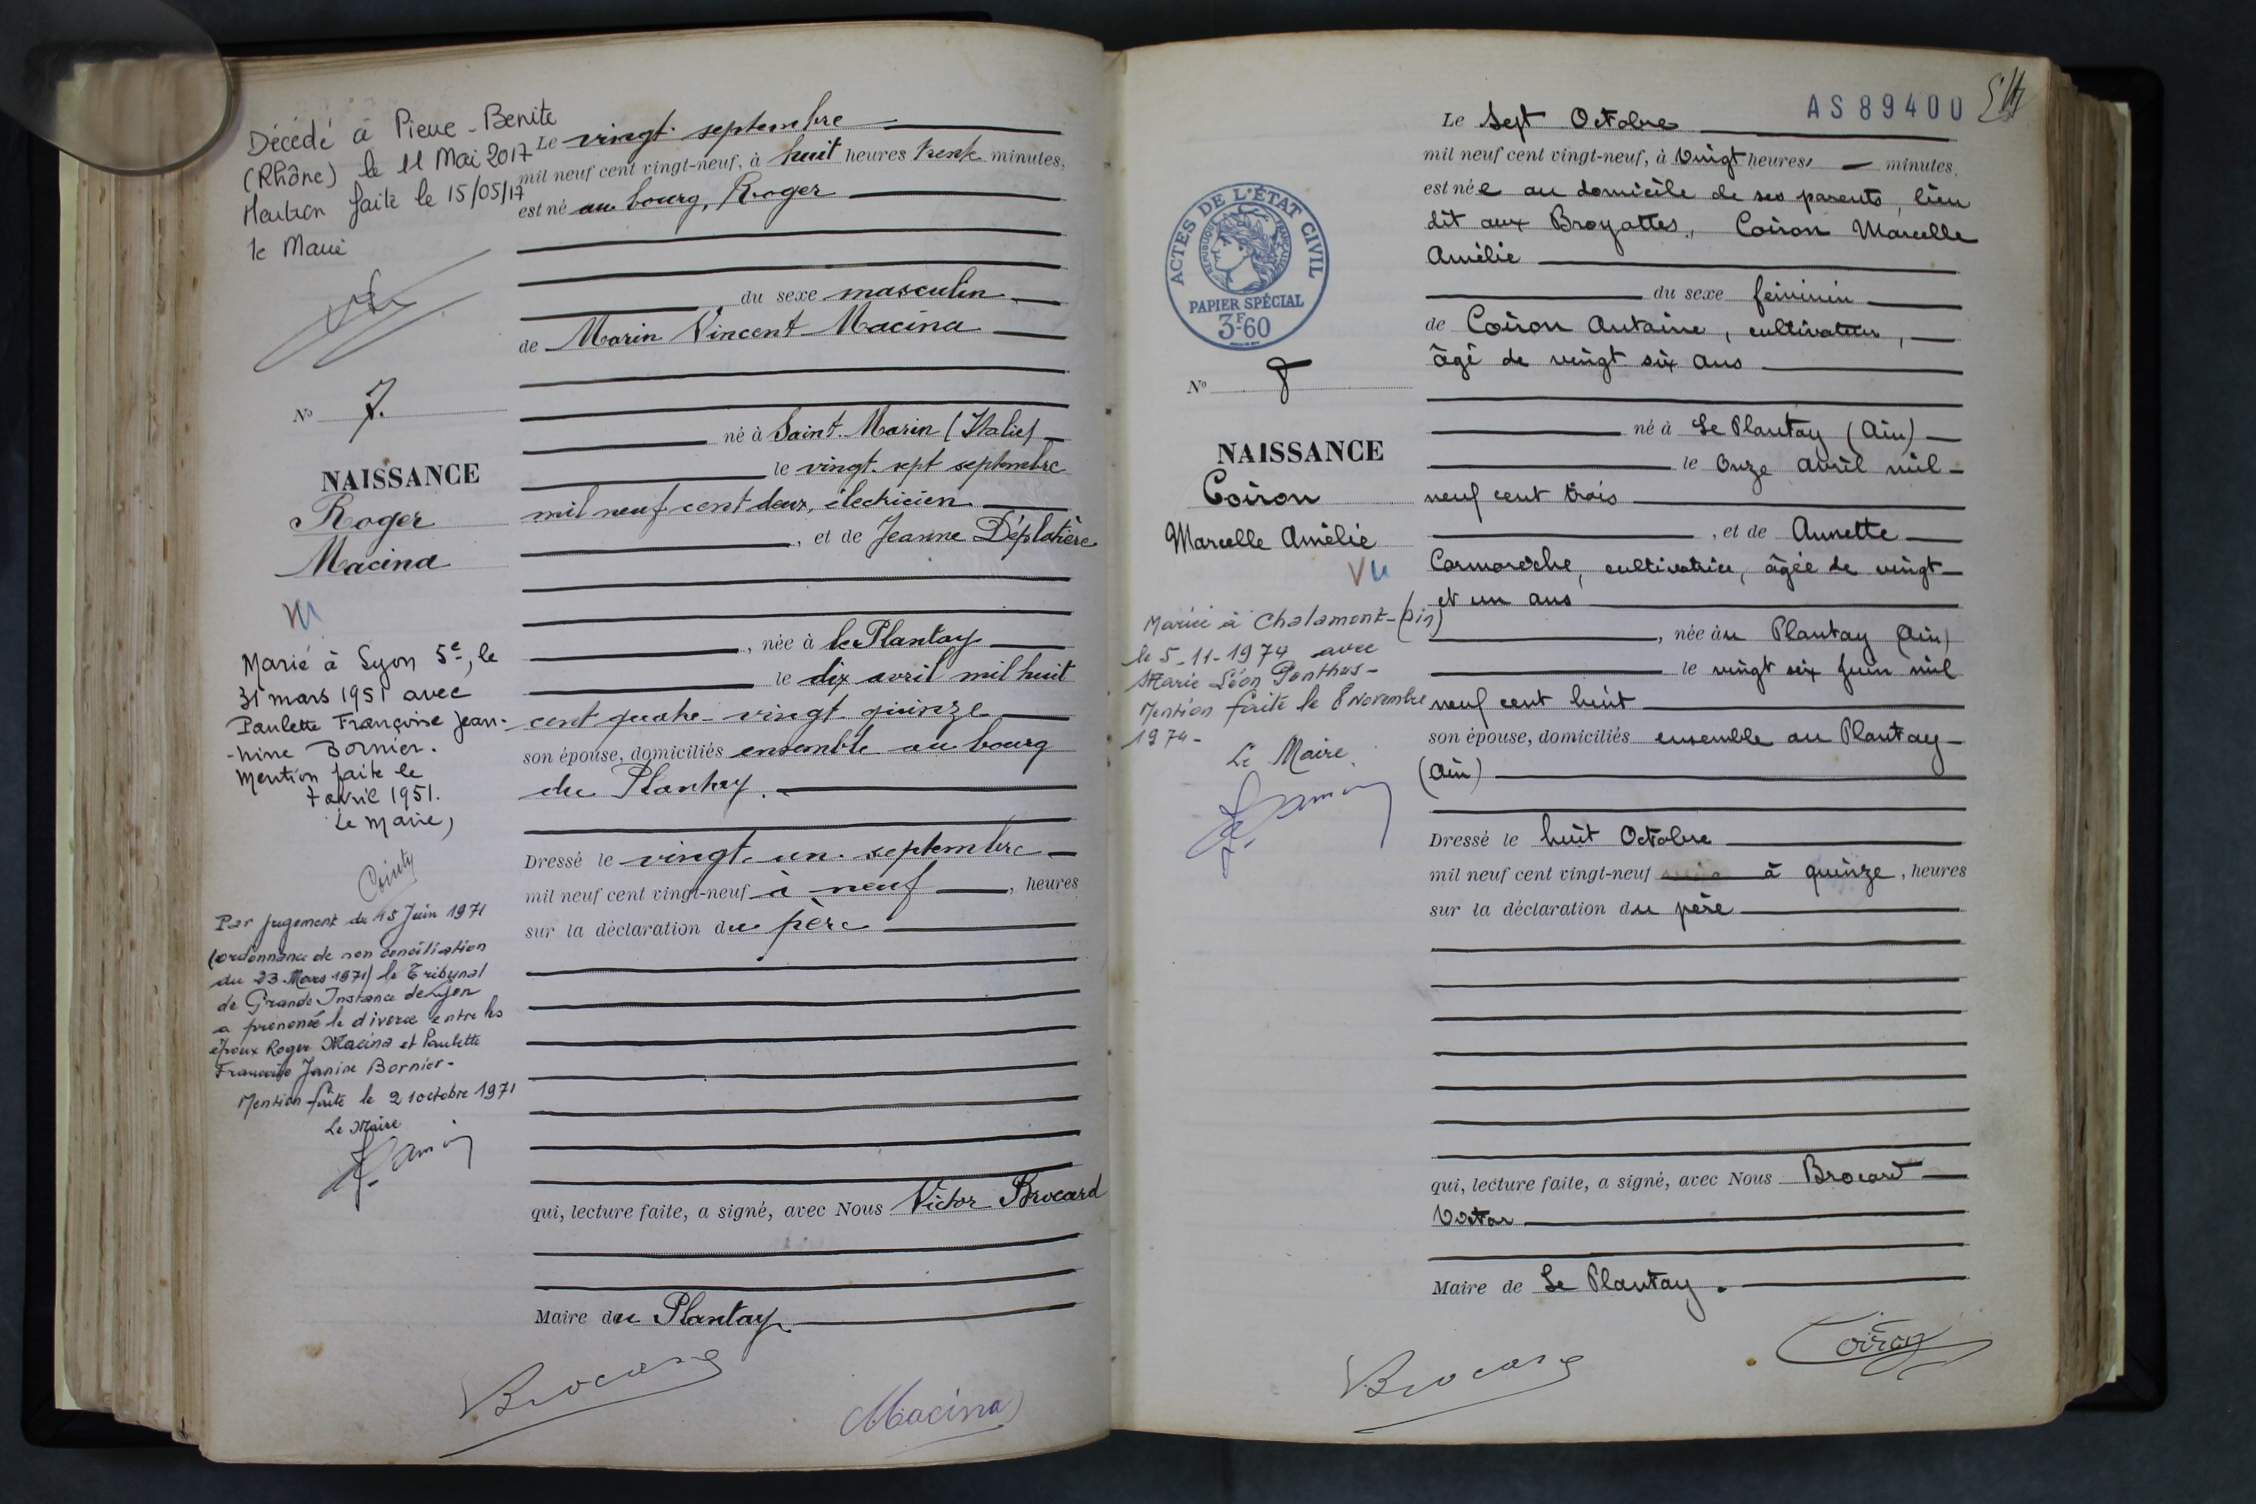 Décédé à Pierre-Benite
(Rhône) le 11 Mai 2017
Mention faite le 15/05/17
le Maire
N° 7.
NAISSANCE
Roger
Macina
Vu
Marié à Lyon 5e, le
31 mars 1951 avec
Paulette Françoise Jean-
-nine Bornier.
Mention faite le
7 avril 1951.
Le Maire,
Par jugement du 15 Juin 1971
(ordonnance de non conciliation
du 23 Mars 1971) le Tribunal
de Grande Instance de Lyon
a prononcé le divorce entre les
époux Roger Macina et Paulette
Françoise Janine Bornier-
Mention faite le 21 octobre 1971
Le Maire
Le vingt septembre
mil neuf cent vingt-neuf, à huit heures trente minutes,
est né au bourg, Roger
du sexe masculin
de Marin Vincent Macina
né à Saint-Marin (Italie)
le vingt-sept septembre
mil neuf cent deux, électricien
, et de Jeanne Déplatière
, née à le Plantay
le dix avril mil huit
cent quatre-vingt-quinze
son épouse, domiciliés ensemble au bourg
du Plantay.
Dressé le vingt-un septembre
mil neuf cent vingt-neuf à neuf , heures
sur la déclaration du père
qui, lecture faite, a signé, avec Nous Victor Brocard
Maire du Plantay
Brocard
Macina
AS89400
ACTES DE L'ÉTAT CIVIL
RÉPUBLIQUE FRANÇAISE
PAPIER SPÉCIAL
3F60
N° 8
NAISSANCE
Coiron
Marcelle Amélie
Vu
Mariée à Chalamont-(Ain)
le 5-11-1974 avec
Marie Léon Ponthus-
Mention faite le 8 Novembre
1974-
Le Maire.
Le Sept Octobre
mil neuf cent vingt-neuf, à Vingt heures, — minutes,
est née au domicile de ses parents, lieu
dit aux Broyattes, Coiron Marcelle
Amélie
du sexe féminin
de Coiron Antoine, cultivateur,
âgé de vingt six ans
né à Le Plantay (Ain)
le Onze avril mil
neuf cent trois
, et de Annette
Carmaroche, cultivatrice, âgée de vingt
et un ans
, née au Plantay (Ain)
le vingt six Juin mil
neuf cent huit
son épouse, domiciliés ensemble au Plantay
(Ain)
Dressé le huit Octobre
mil neuf cent vingt-neuf à quinze , heures
sur la déclaration du père
qui, lecture faite, a signé, avec Nous Brocard
Victor
Maire de Le Plantay.
Brocard
Coiron